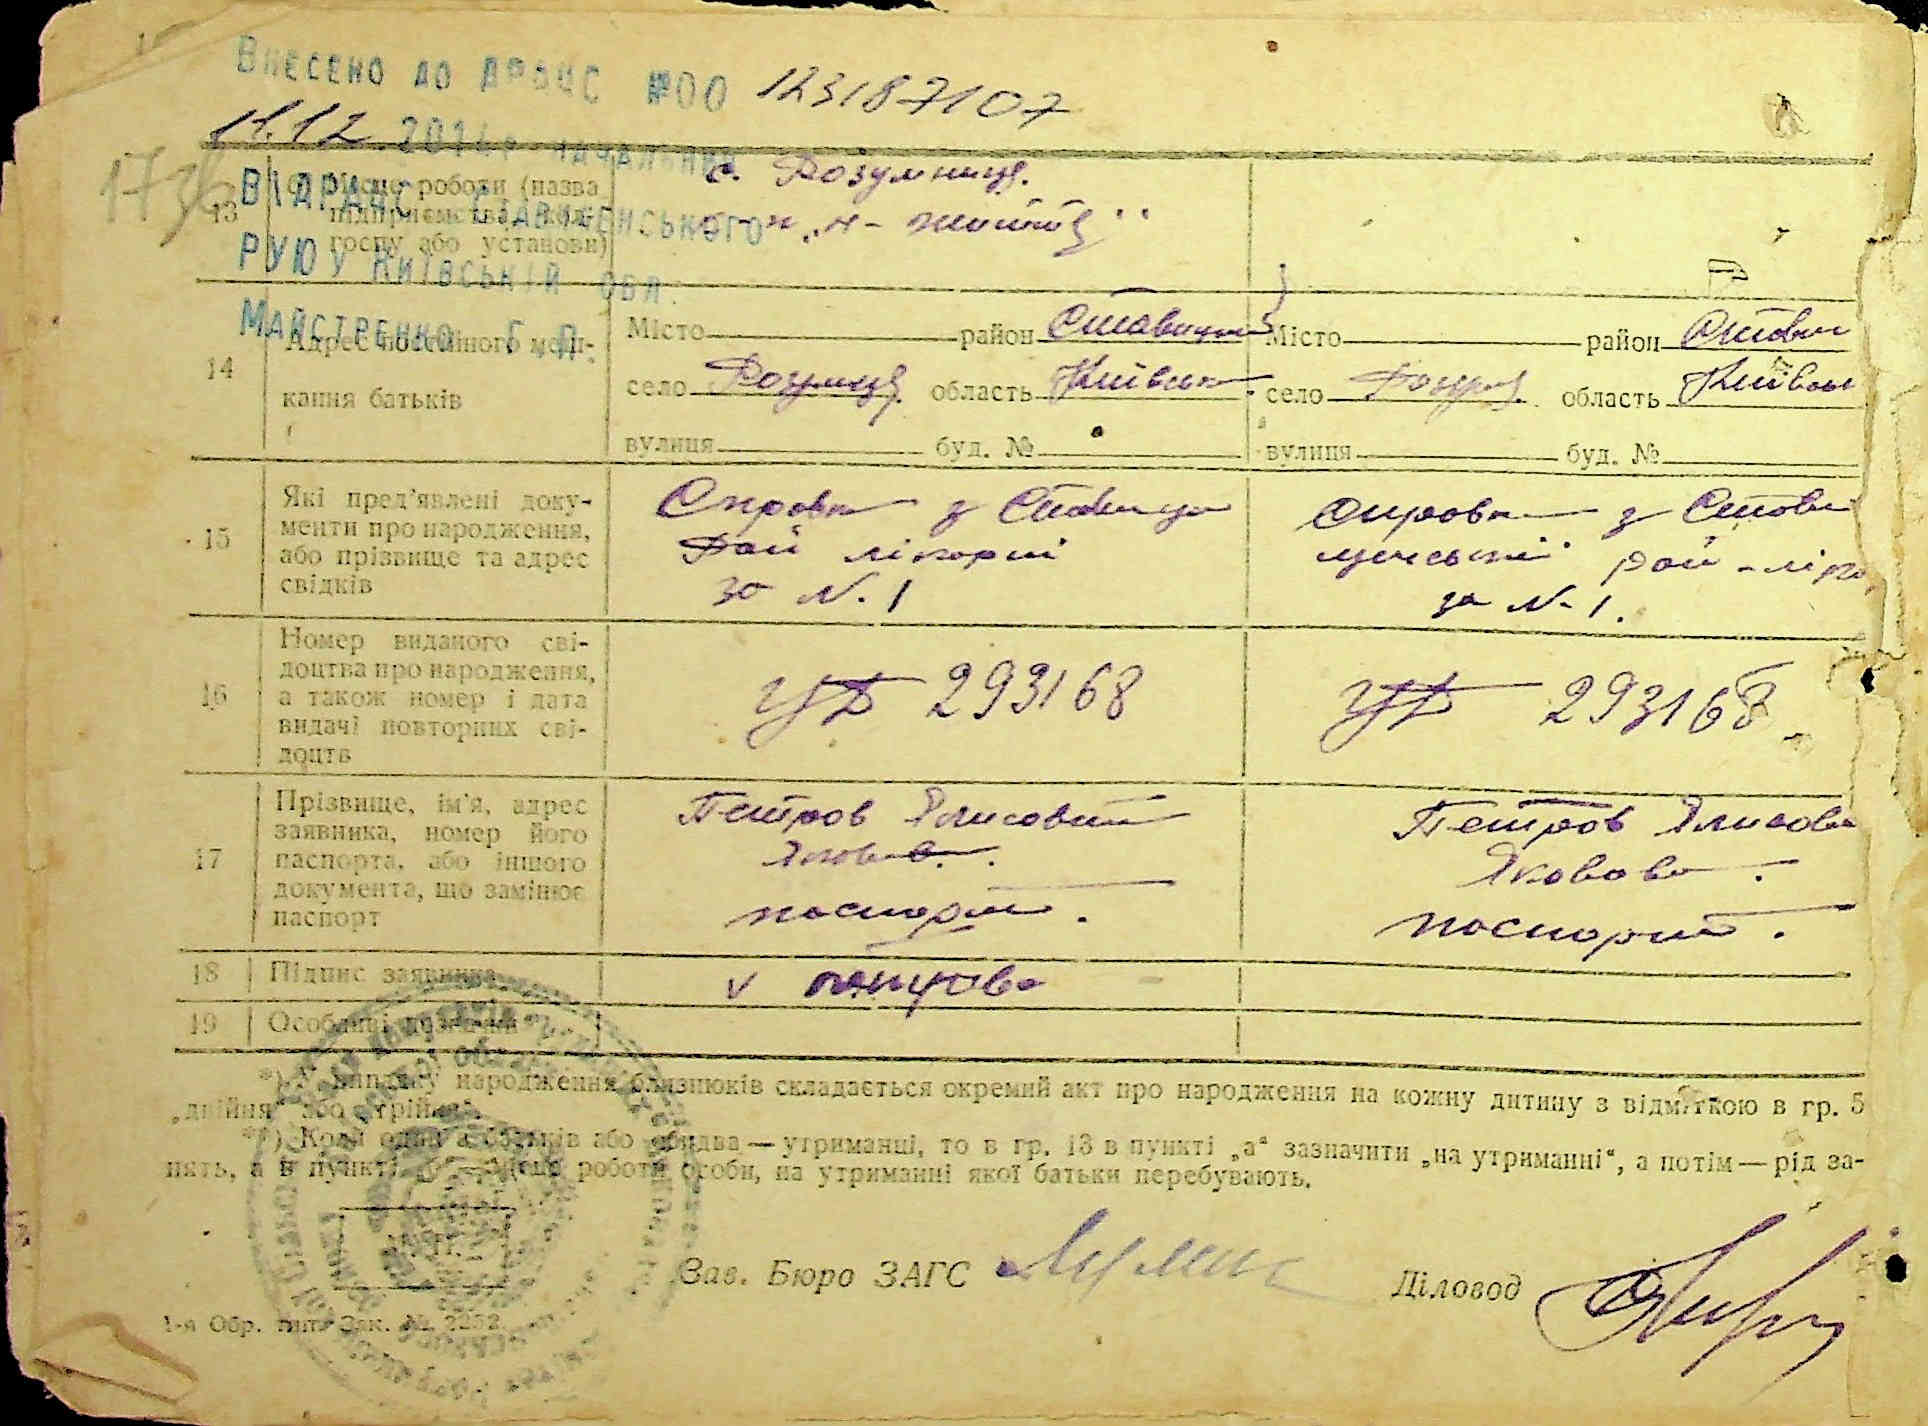 Внесено до ДРАЦС №00 123187107
11.12.2014р начальник
ВІДРАЦС Ставищенського
РУЮ у Київській обл.
Майстренко Г. П.
173
13 Місце роботи (назва підприємства, колгоспу або установи)
с. Розумниця.
к „Н-життя"
14 Адрес постійного мешкання батьків
Місто район Ставищан Місто район Ставищ
село Розумниця область Київськ село Розумн. область Київськ
вулиця буд. № вулиця буд. №
15 Які пред'явлені документи про народження, або прізвище та адрес свідків
Справка з Ставище
Рай лікарні
за №. 1
Справка з Стави
щенської рай-ліка
за №. 1.
16 Номер виданого свідоцтва про народження, а також номер і дата видачі повторних свідоцтв
УБ 293168 УБ 293168
17 Прізвище, ім'я, адрес заявника, номер його паспорта, або іншого документа, що замінює паспорт
Петров
Яков.
паспорт.
Петров
Якова.
паспорт.
18 Підпис заявника
v Петрова
19 Особливі позначки
*) У випадку народження близнюків складається окремий акт про народження на кожну дитину з відміткою в гр. 5
„двійня" або „трійня".
**) Коли один з батьків або обидва — утриманці, то в гр. 13 в пункті „а" зазначити „на утриманні", а потім — рід за-
нять, а в пункті „б" — місце роботи особи, на утриманні якої батьки перебувають.
Зав. Бюро ЗАГС
Діловод
1-я Обр. тип. Зак. № 2252